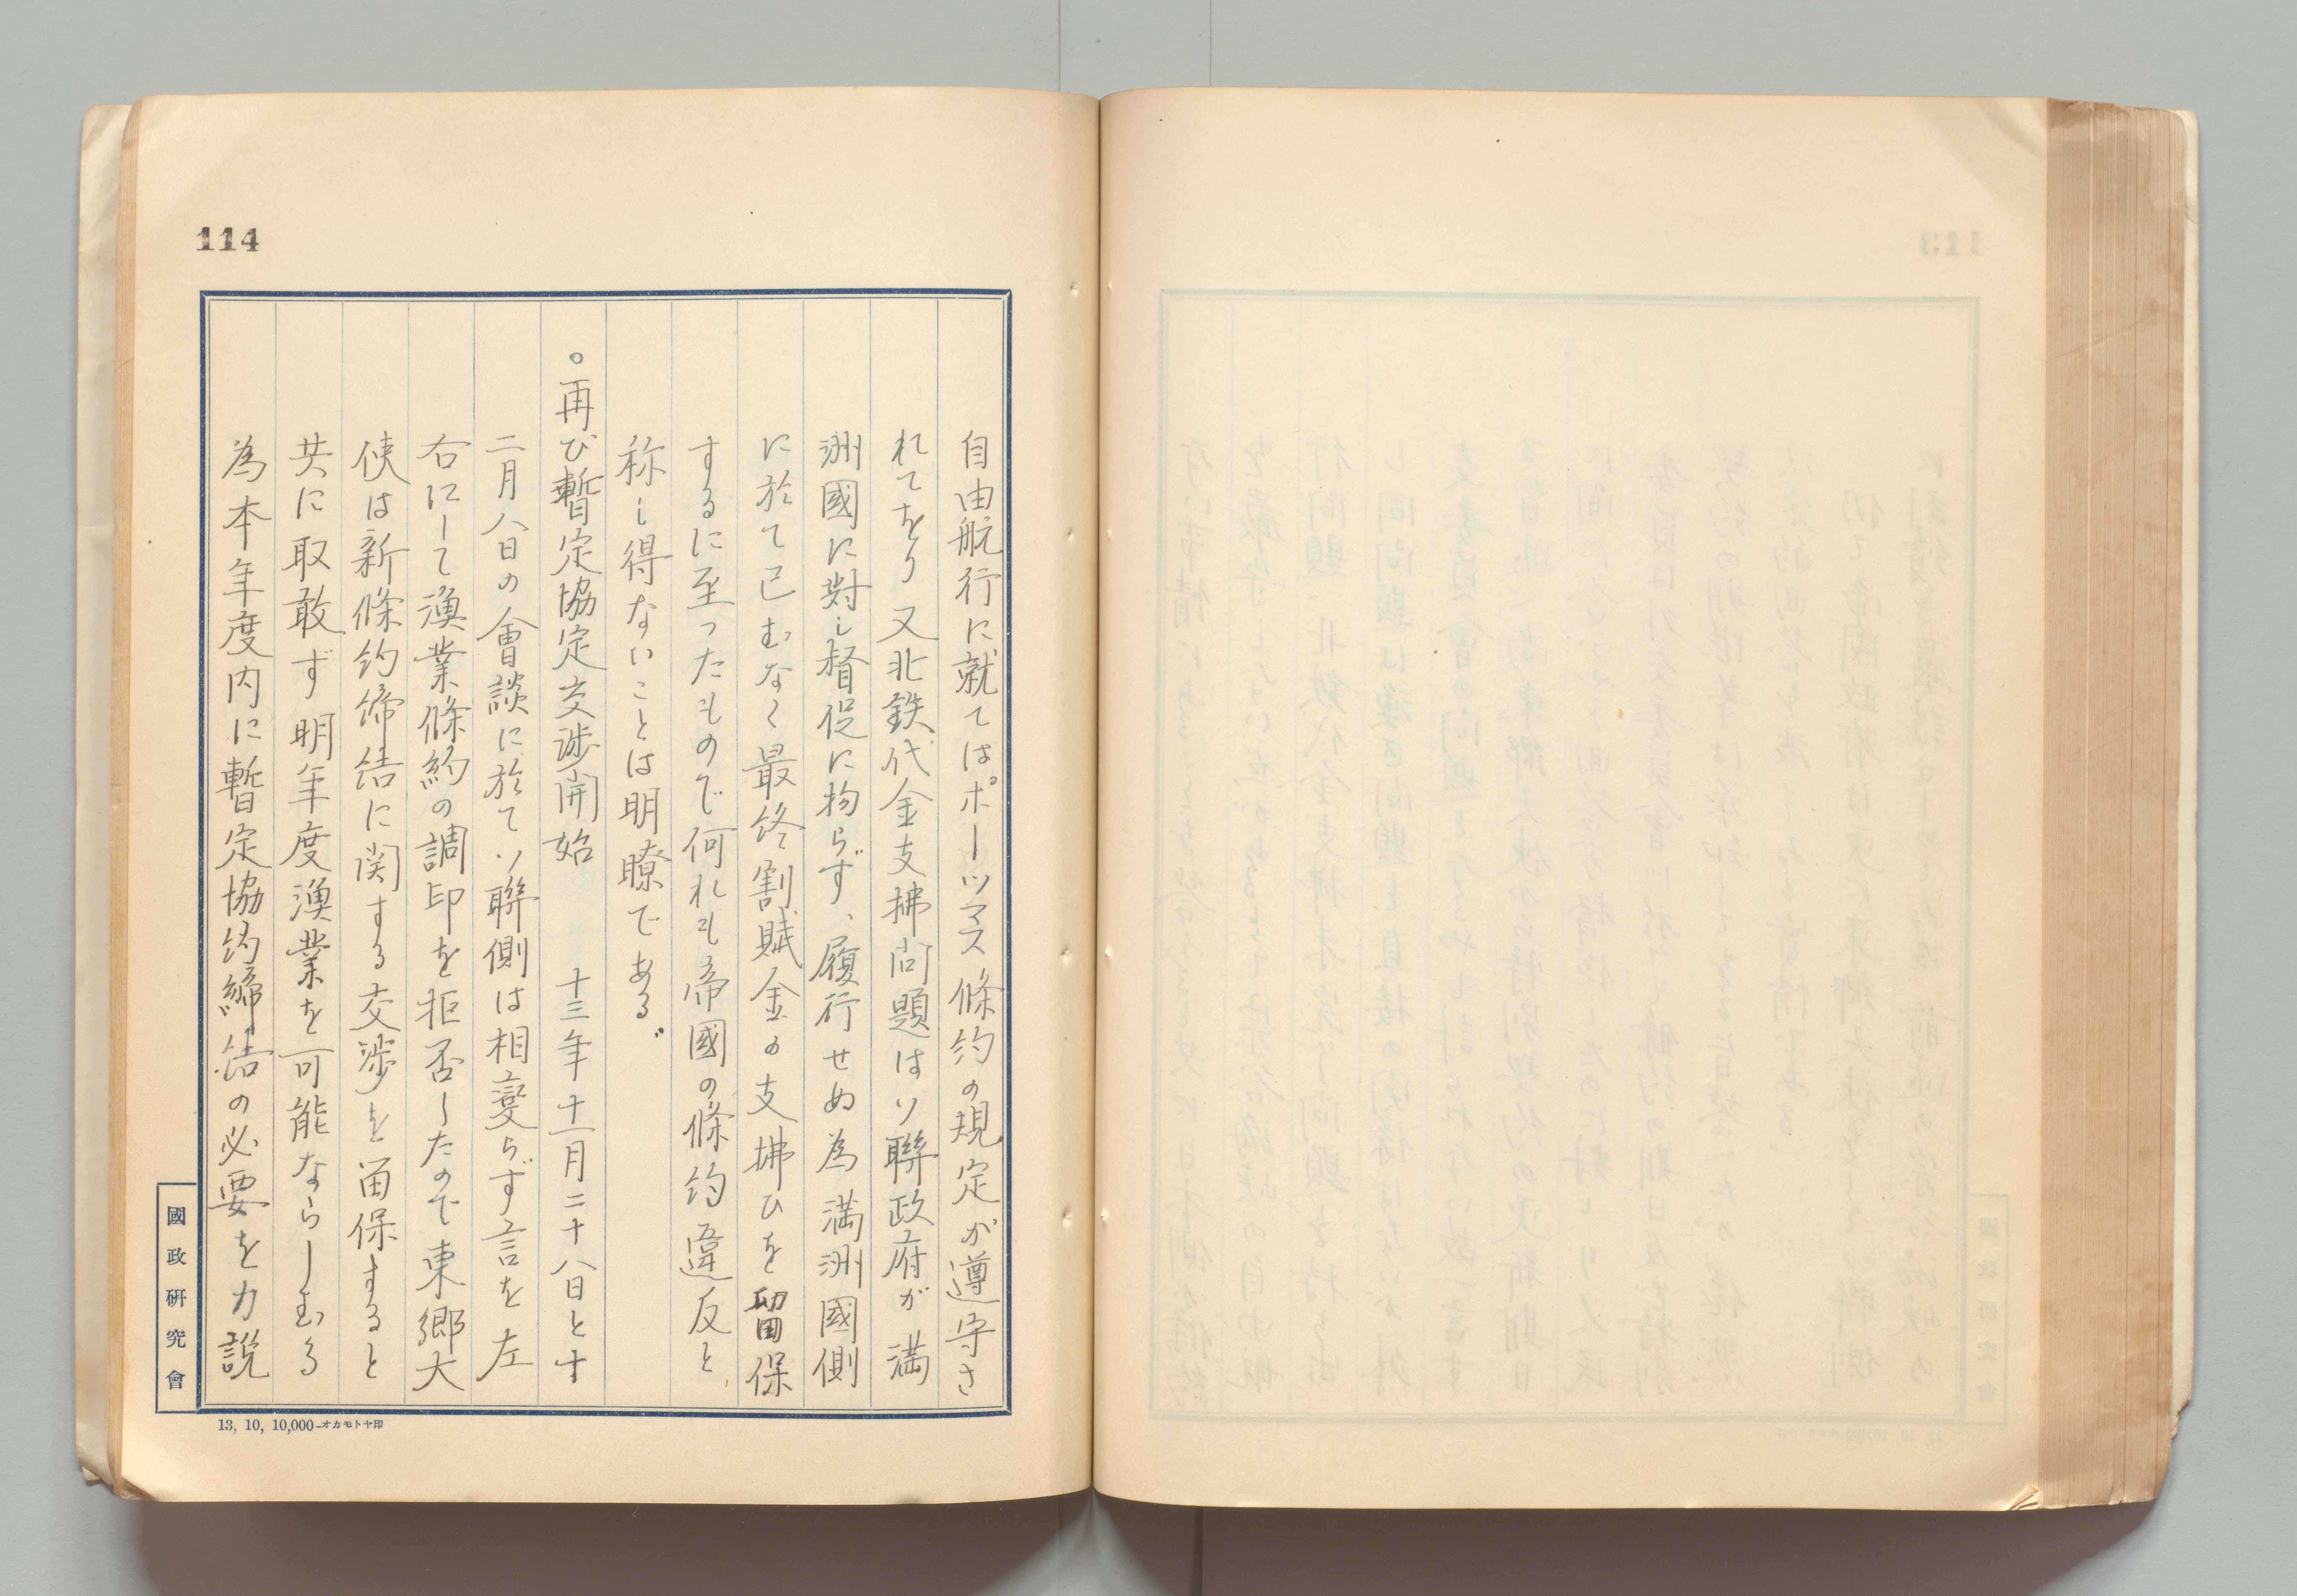 114
自由航行に就てはポーツマス條約の規定が遵守さ
れてをり又北鉄代金支拂問題はソ聯政府が満
洲國に對し督促に拘らず、履行せぬ為満洲國側
に於て已むなく最終割賦金の支拂ひを留保
するに至ったもので何れも帝國の條約違反と
称し得ないことは明瞭である。
○再び暫定協定交渉開始 十三年十一月二十八日とす
二月八日の會談に於てソ聯側は相變らず言を左
右にして漁業條約の調印を拒否したので東郷大
使は新條約締結に関する交渉を留保すると
共に取敢ず明年度漁業を可能ならしむる
為本年度内に暫定協約締結の必要を力説
國政研究會
13, 10, 10,000-オカモトヤ印